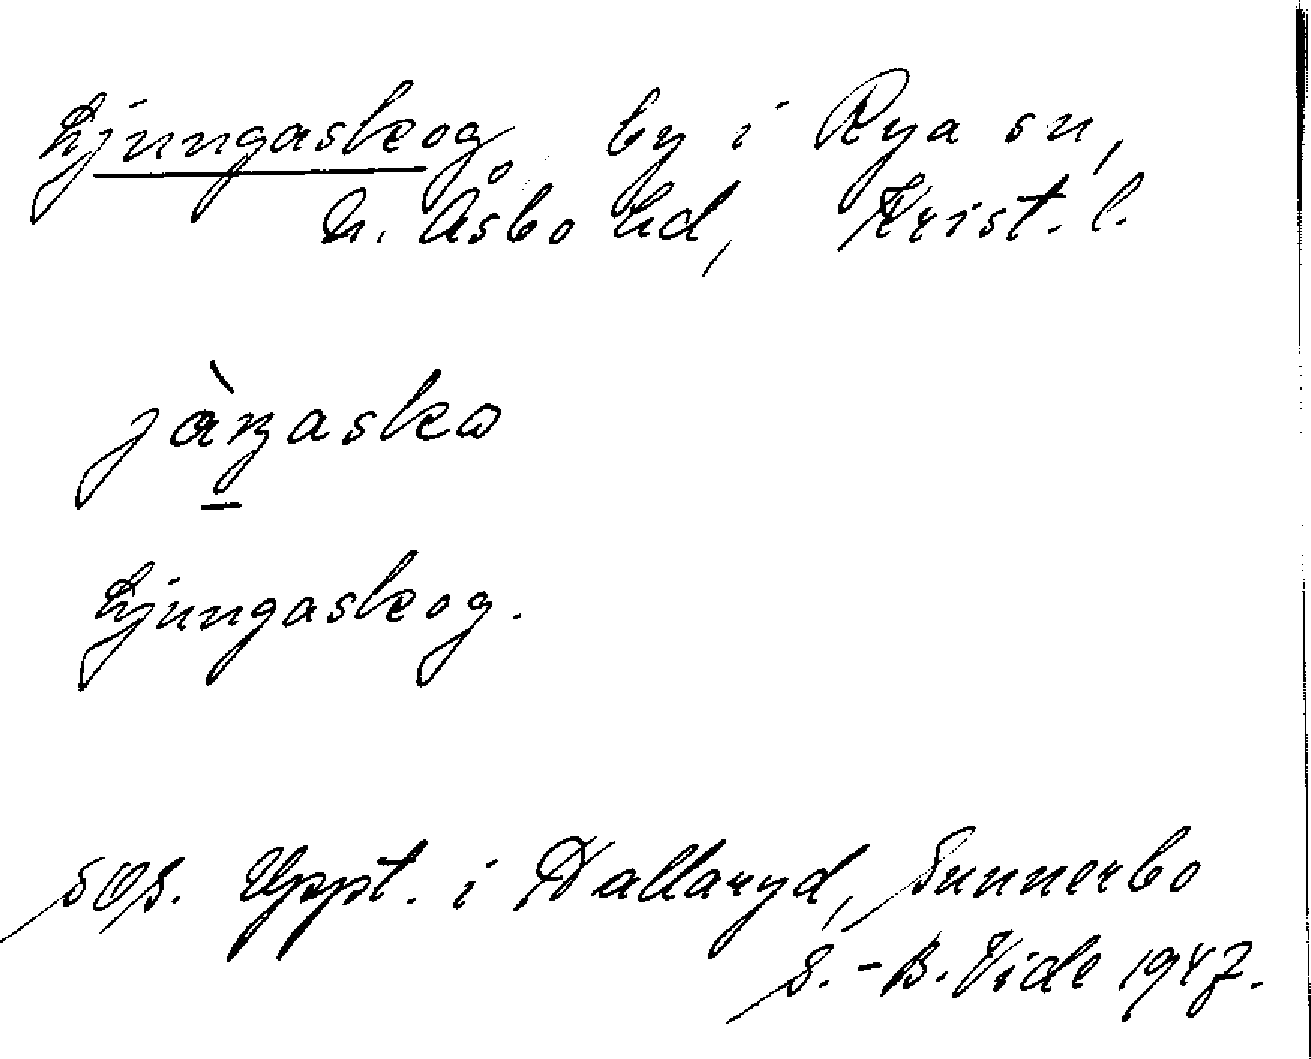 Ljungaskog, by i Rya sn,
N. Åsbo hd, Krist. l.
Ljungaskog.
Sos. Uppt. i Dallaryd, Sunnerbo
S.-B. Vide 1947.